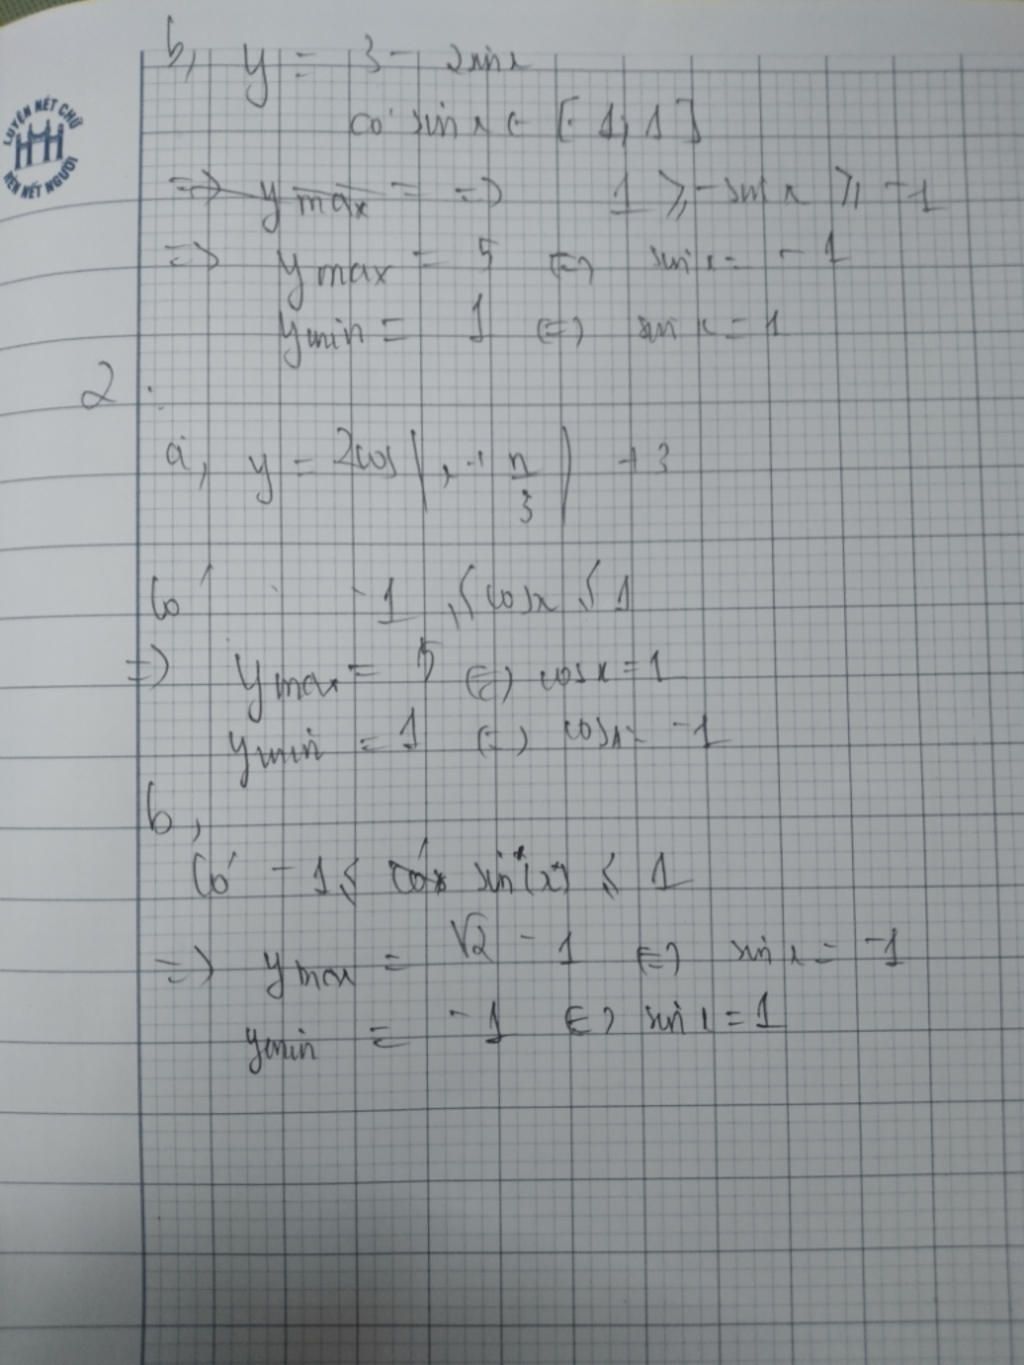 b, y = 3 - 2sinx
LUYỆN NÉT CHỮ
RÈN NẾT NGƯỜI
có sin x ∈ [-1, 1]
=> y max = => 1 ≥ -sin x ≥ -1
=> y max = 5 <=> sin x = -1
y min = 1 <=> sin x = 1
2.
a, y = 2cos(x + π/3) + 3
Có -1 ≤ cosx ≤ 1
=> y max = 5 <=> cos x = 1
y min = 1 <=> cosx = -1
b,
Có -1 ≤ sin (x²) ≤ 1
=> y max = √2 - 1 <=> sin x = -1
y min = -1 <=> sin x = 1